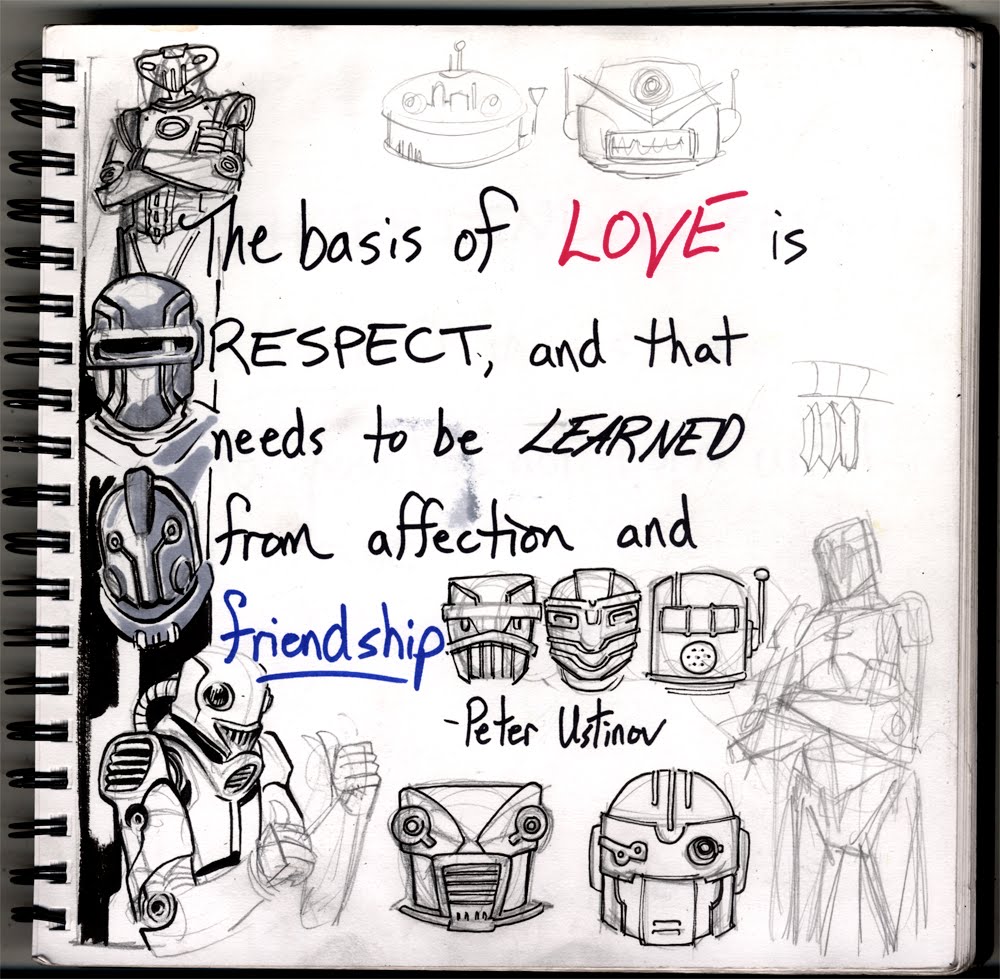 The basis of LOVE is
RESPECT, and that
needs to be LEARNED
from affection and
friendship
-Peter Ustinov